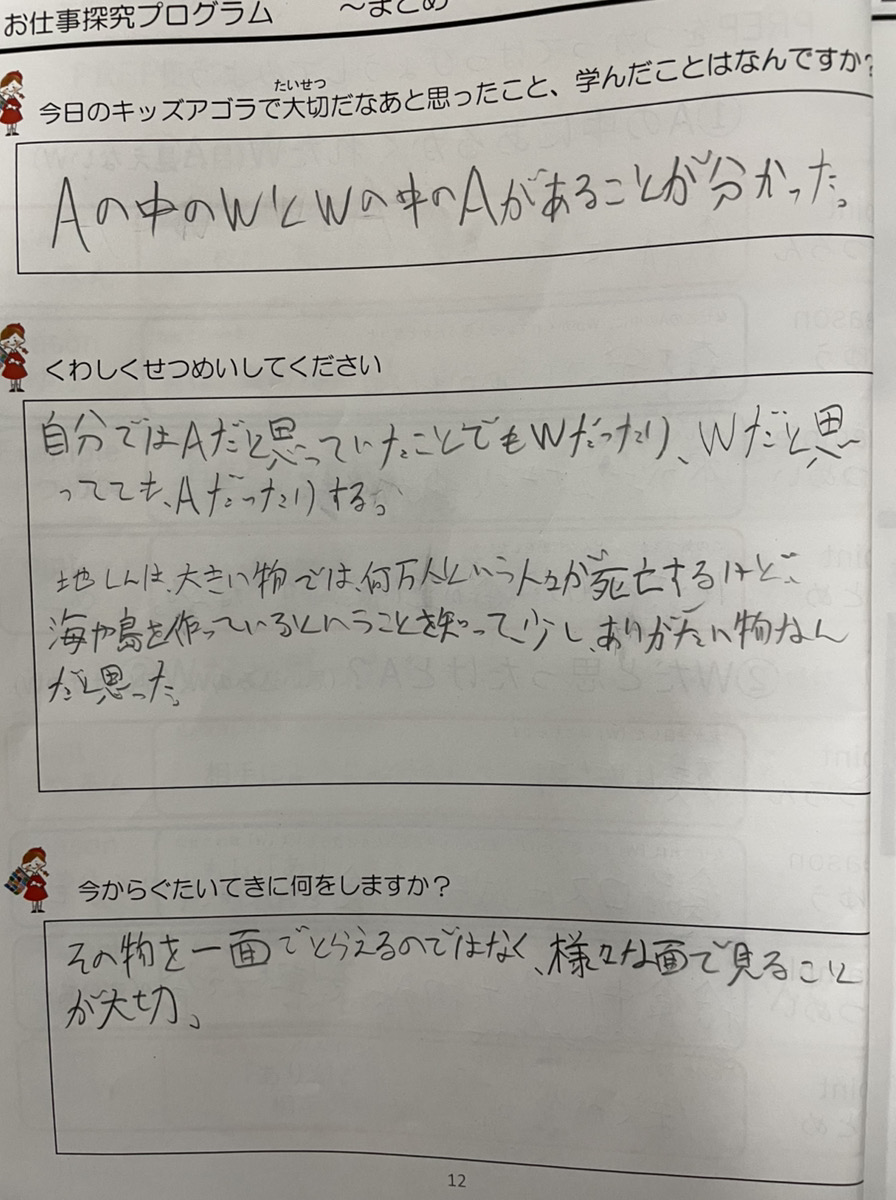 お仕事探究プログラム　～まとめ
たいせつ
今日のキッズアゴラで大切だなあと思ったこと、学んだことはなんですか？
Aの中のWとWの中のAがあることが分かった。
くわしくせつめいしてください
自分ではAだと思っていたことでもWだったり、Wだと思
ってても、Aだったりする。
地しんは、大きい物では、何万人という人々が死亡するけど、
海や島を作っているということを知って、少し、ありがたい物なん
だと思った。
今からぐたいてきに何をしますか？
その物を一面でとらえるのではなく、様々な面で見ること
が大切。
12